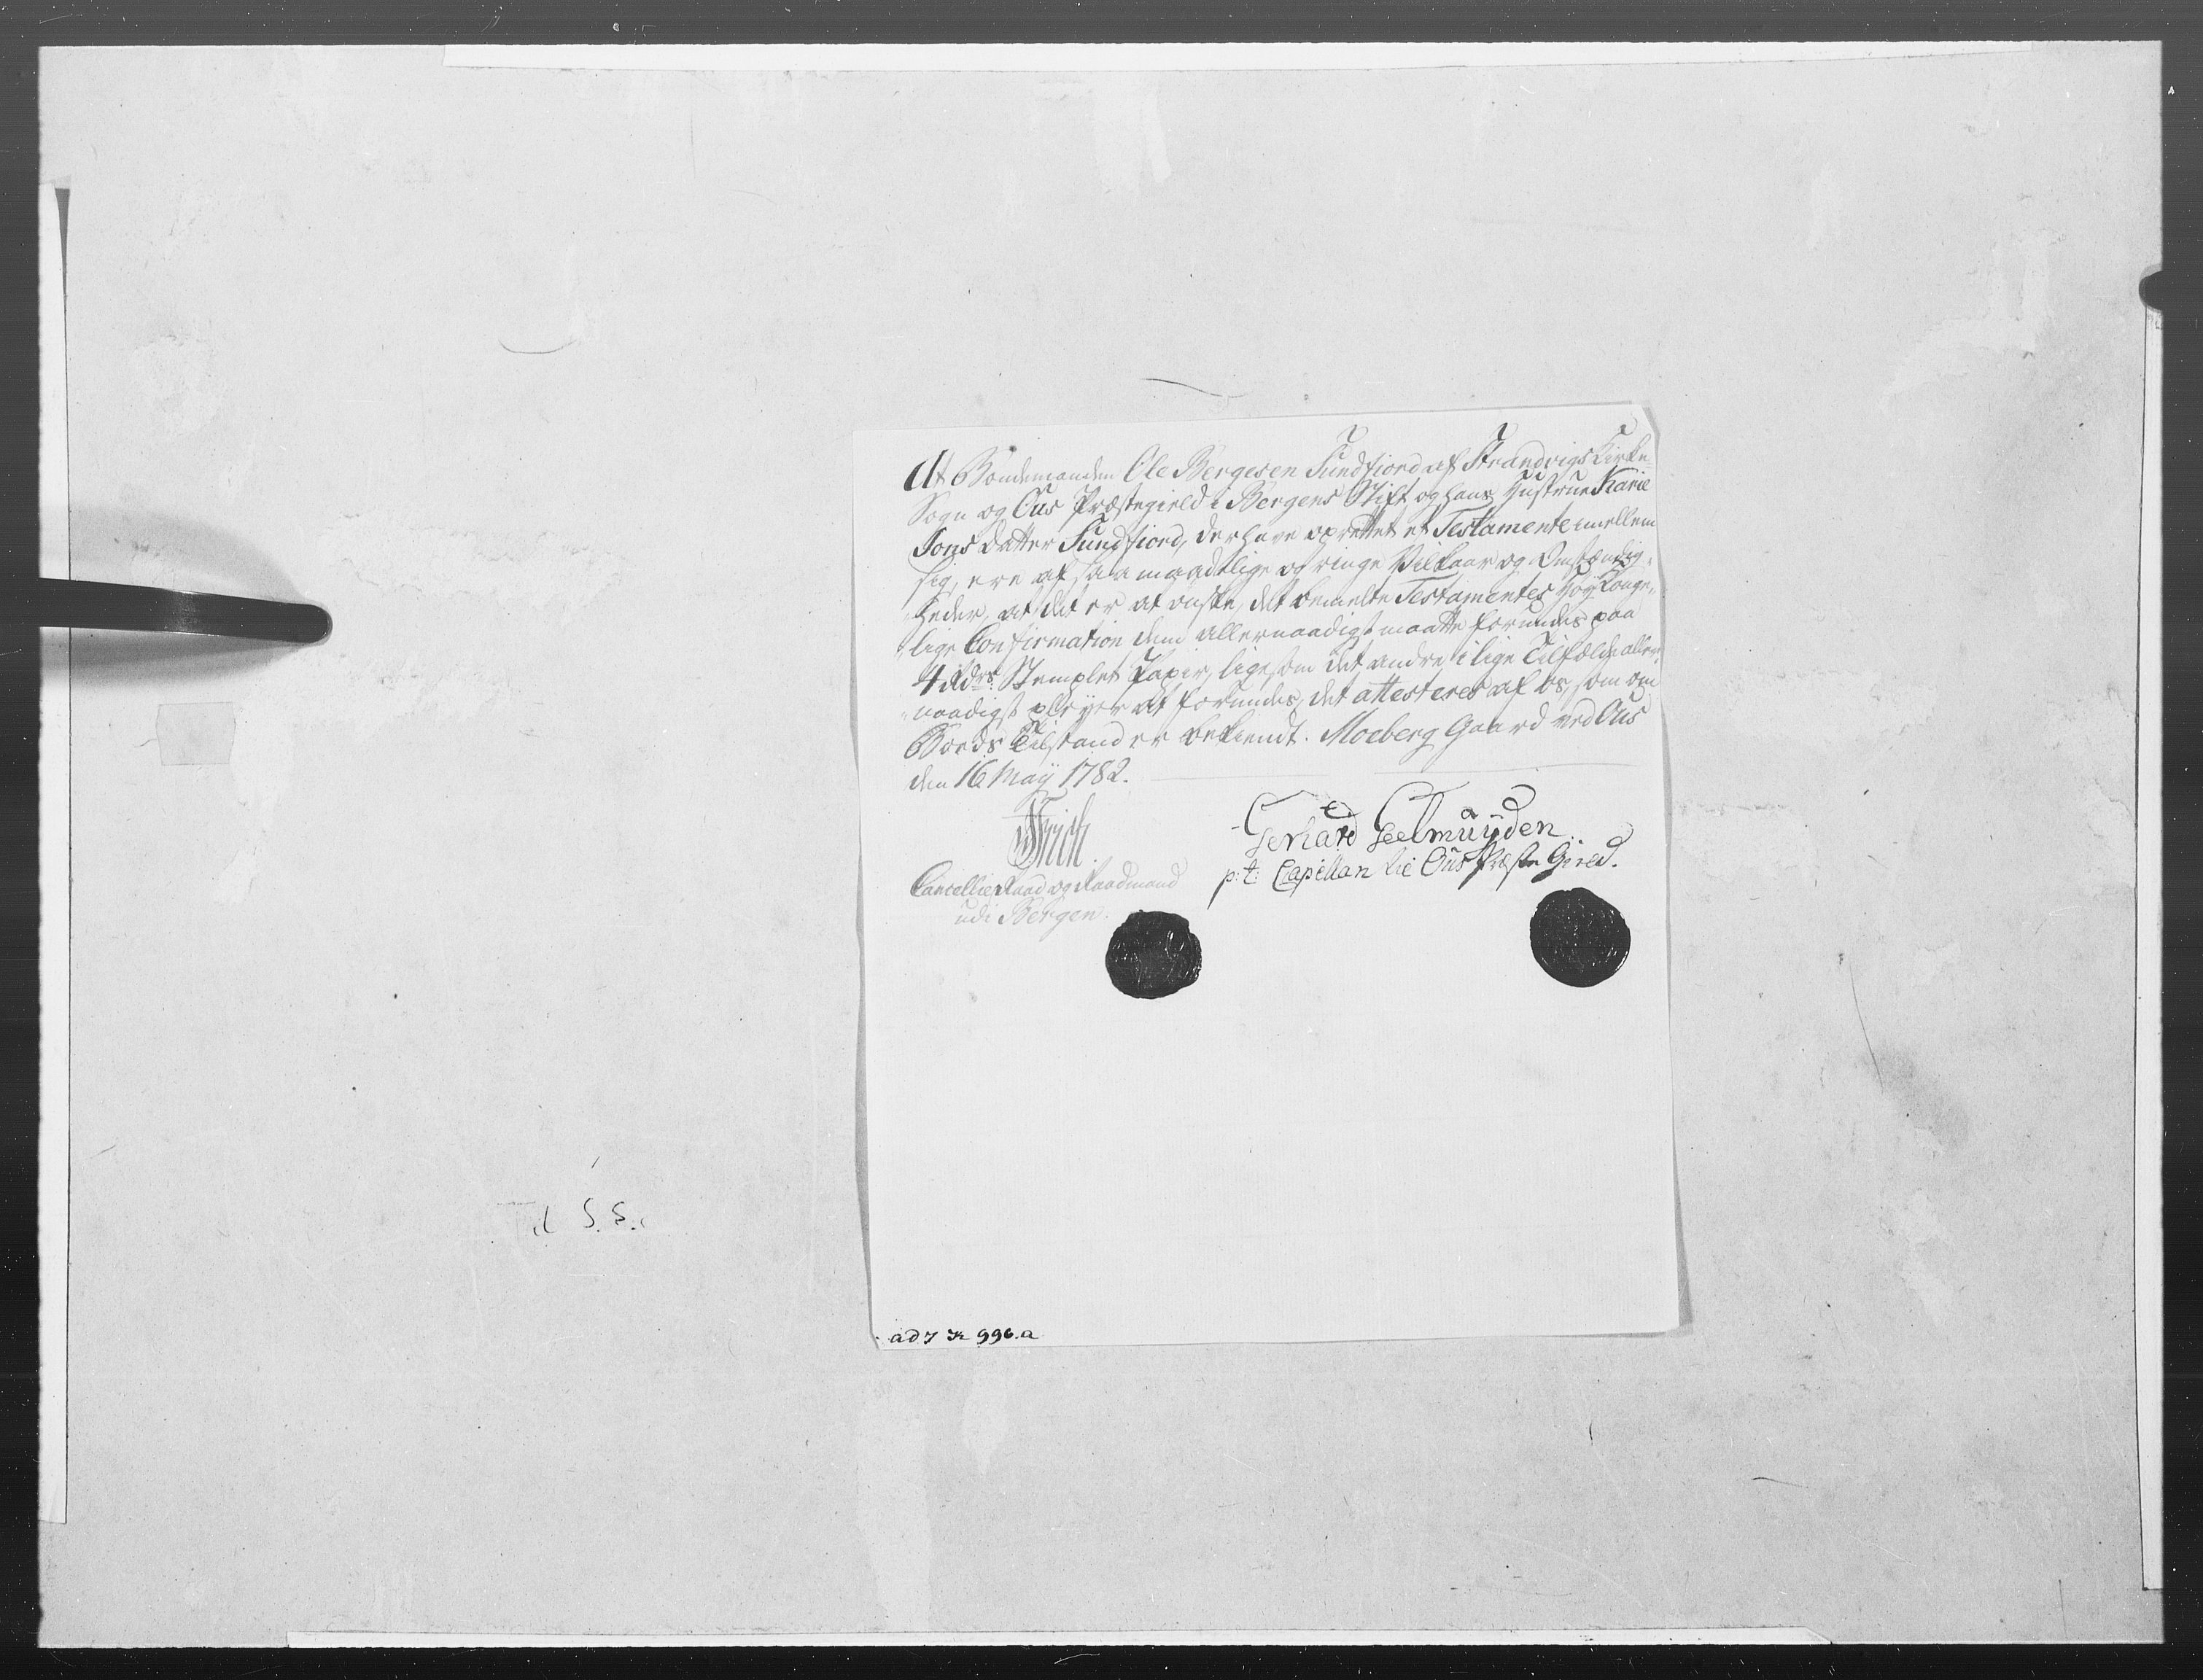 At Bondemanden Ole Bergesen Sundfiord af Strandvigs Kirke
Sogn og Ous Præstegield i Bergens Stift og hans Hustrue Karie
Jons datter Sundfiord, der have oprettet et Testamente imellem
sig, ere af saa maadelige og ringe Vilkaar og Omstændig-
heder, at det er at ønske, det bemelte Testamentes Høy Konge-
lige Confirmation dem allernaadigst maatte forundes paa
4 Rdrs. Stemplet Papir, ligesom det andre i lige Tilfælde aller-
naadigst pleyer at forundes, det attesteres af os, som om
Boeds Tilstand er bekiendt. Moeberg Gaard ved Ous
den 16 Maij 1782.
Frich.
Cancellie Raad og Raadmand
udi Bergen.
Gerhard Geelmuyden.
p: t: Capellan til Ous Præste Gield.
Til S. S.
ad J K 996.a